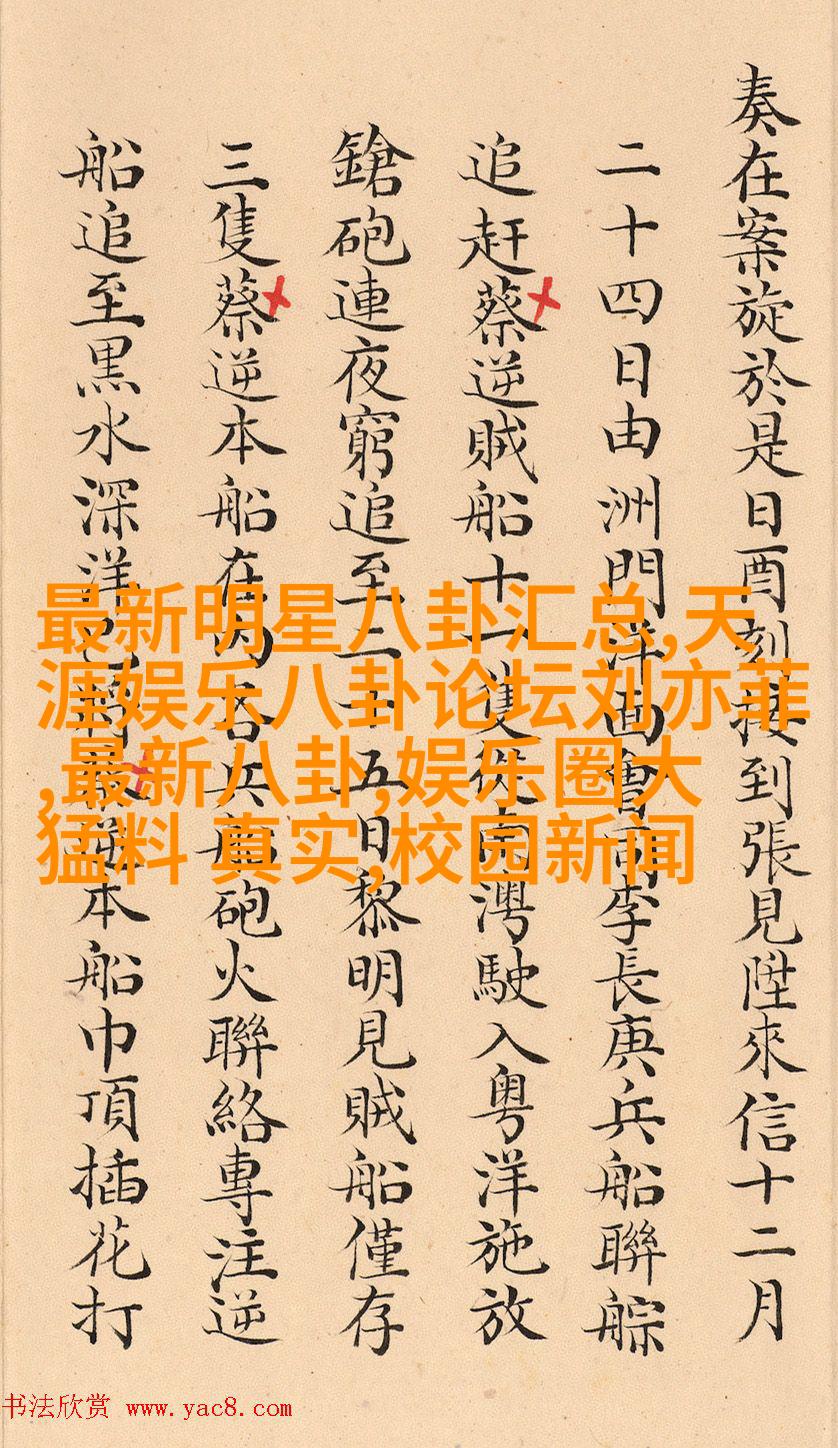 奏在案旋於是日酉刻接到張見陞來信十二月
二十四日由洲門洋面會同李長庚兵船聯䑸
追赶蔡逆賊船十一隻灣駛入粤洋施放
鎗砲連夜窮追至二十五日黎明見賊船僅存
三隻蔡逆本船在內各兵船砲火聯絡專注逆
船追至黒水深洋蔡逆本船巾頂插花打
最新明星八卦汇总,天
涯娱乐八卦论坛刘亦菲
,最新八卦,娱乐圈大
猛料 真实,校园新闻
书法欣赏 www.yac8.com